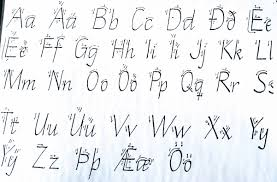 Aa Áá Bb Cc Dd Ðð Ee
Éé Ff Gg Hh Ii Íí Jj Kk Ll
Mm Nn Oo Óó Pp Qq Rr Ss
Tt Uu Úú Vv Ww Xx Yy
Ýý Zz Þþ Ææ Öö